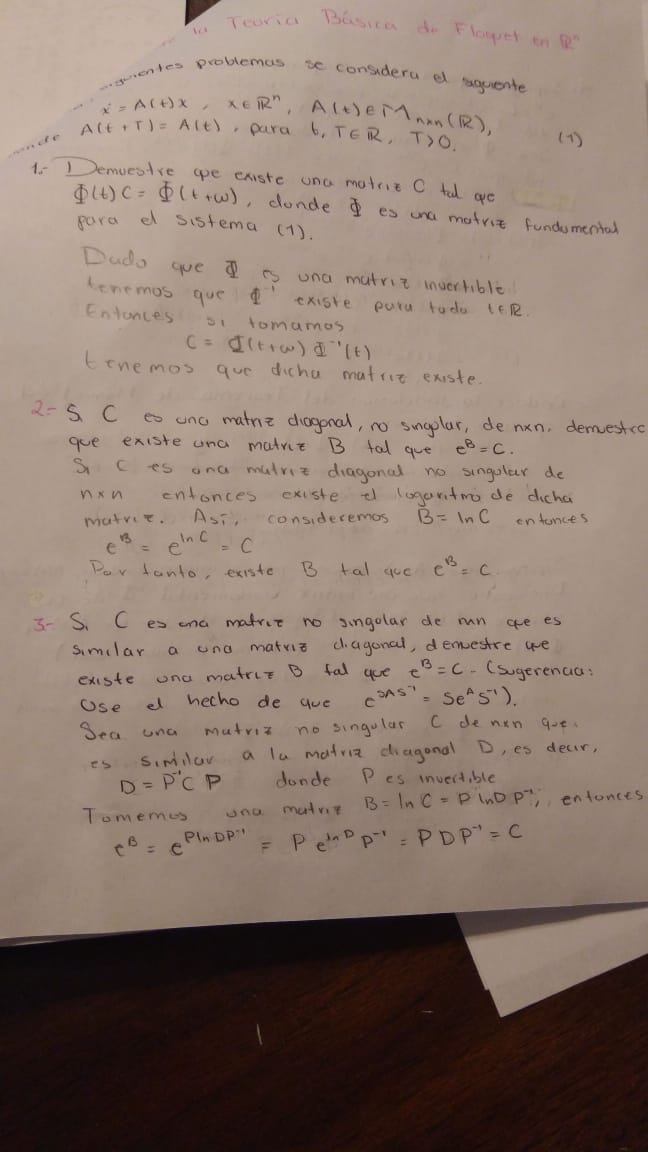 la Teoría Básica de Floquet en ℝⁿ
siguientes problemas se considera el siguiente
ẋ = A(t)x, x∈ℝⁿ, A(t)∈M_{n×n}(ℝ),
A(t+T)=A(t), para t,T∈ℝ, T>0. (1)
1.- Demuestre que existe una matriz C tal que
Φ(t)C = Φ(t+ω), donde Φ es una matriz fundamental
para el sistema (1).
Dado que Φ es una matriz invertible
tenemos que Φ⁻¹ existe para todo t∈ℝ.
Entonces si tomamos
C = Φ(t+ω)Φ⁻¹(t)
tenemos que dicha matriz existe.
2.- Si C es una matriz diagonal, no singular, de nxn, demuestre
que existe una matriz B tal que e^B = C.
Si C es una matriz diagonal no singular de
nxn entonces existe el logaritmo de dicha
matriz. Así, consideremos B = ln C entonces
e^B = e^{ln C} = C
Por tanto, existe B tal que e^B = C.
3.- Si C es una matriz no singular de nxn que es
similar a una matriz diagonal, demuestre que
existe una matriz B tal que e^B = C. (Sugerencia:
Use el hecho de que e^{SAS⁻¹} = Se^A S⁻¹).
Sea una matriz no singular C de nxn que
es similar a la matriz diagonal D, es decir,
D = P⁻¹CP donde P es invertible
Tomemos una matriz B = ln C = P ln D P⁻¹, entonces
e^B = e^{P ln D P⁻¹} = P e^{ln D} P⁻¹ = P D P⁻¹ = C